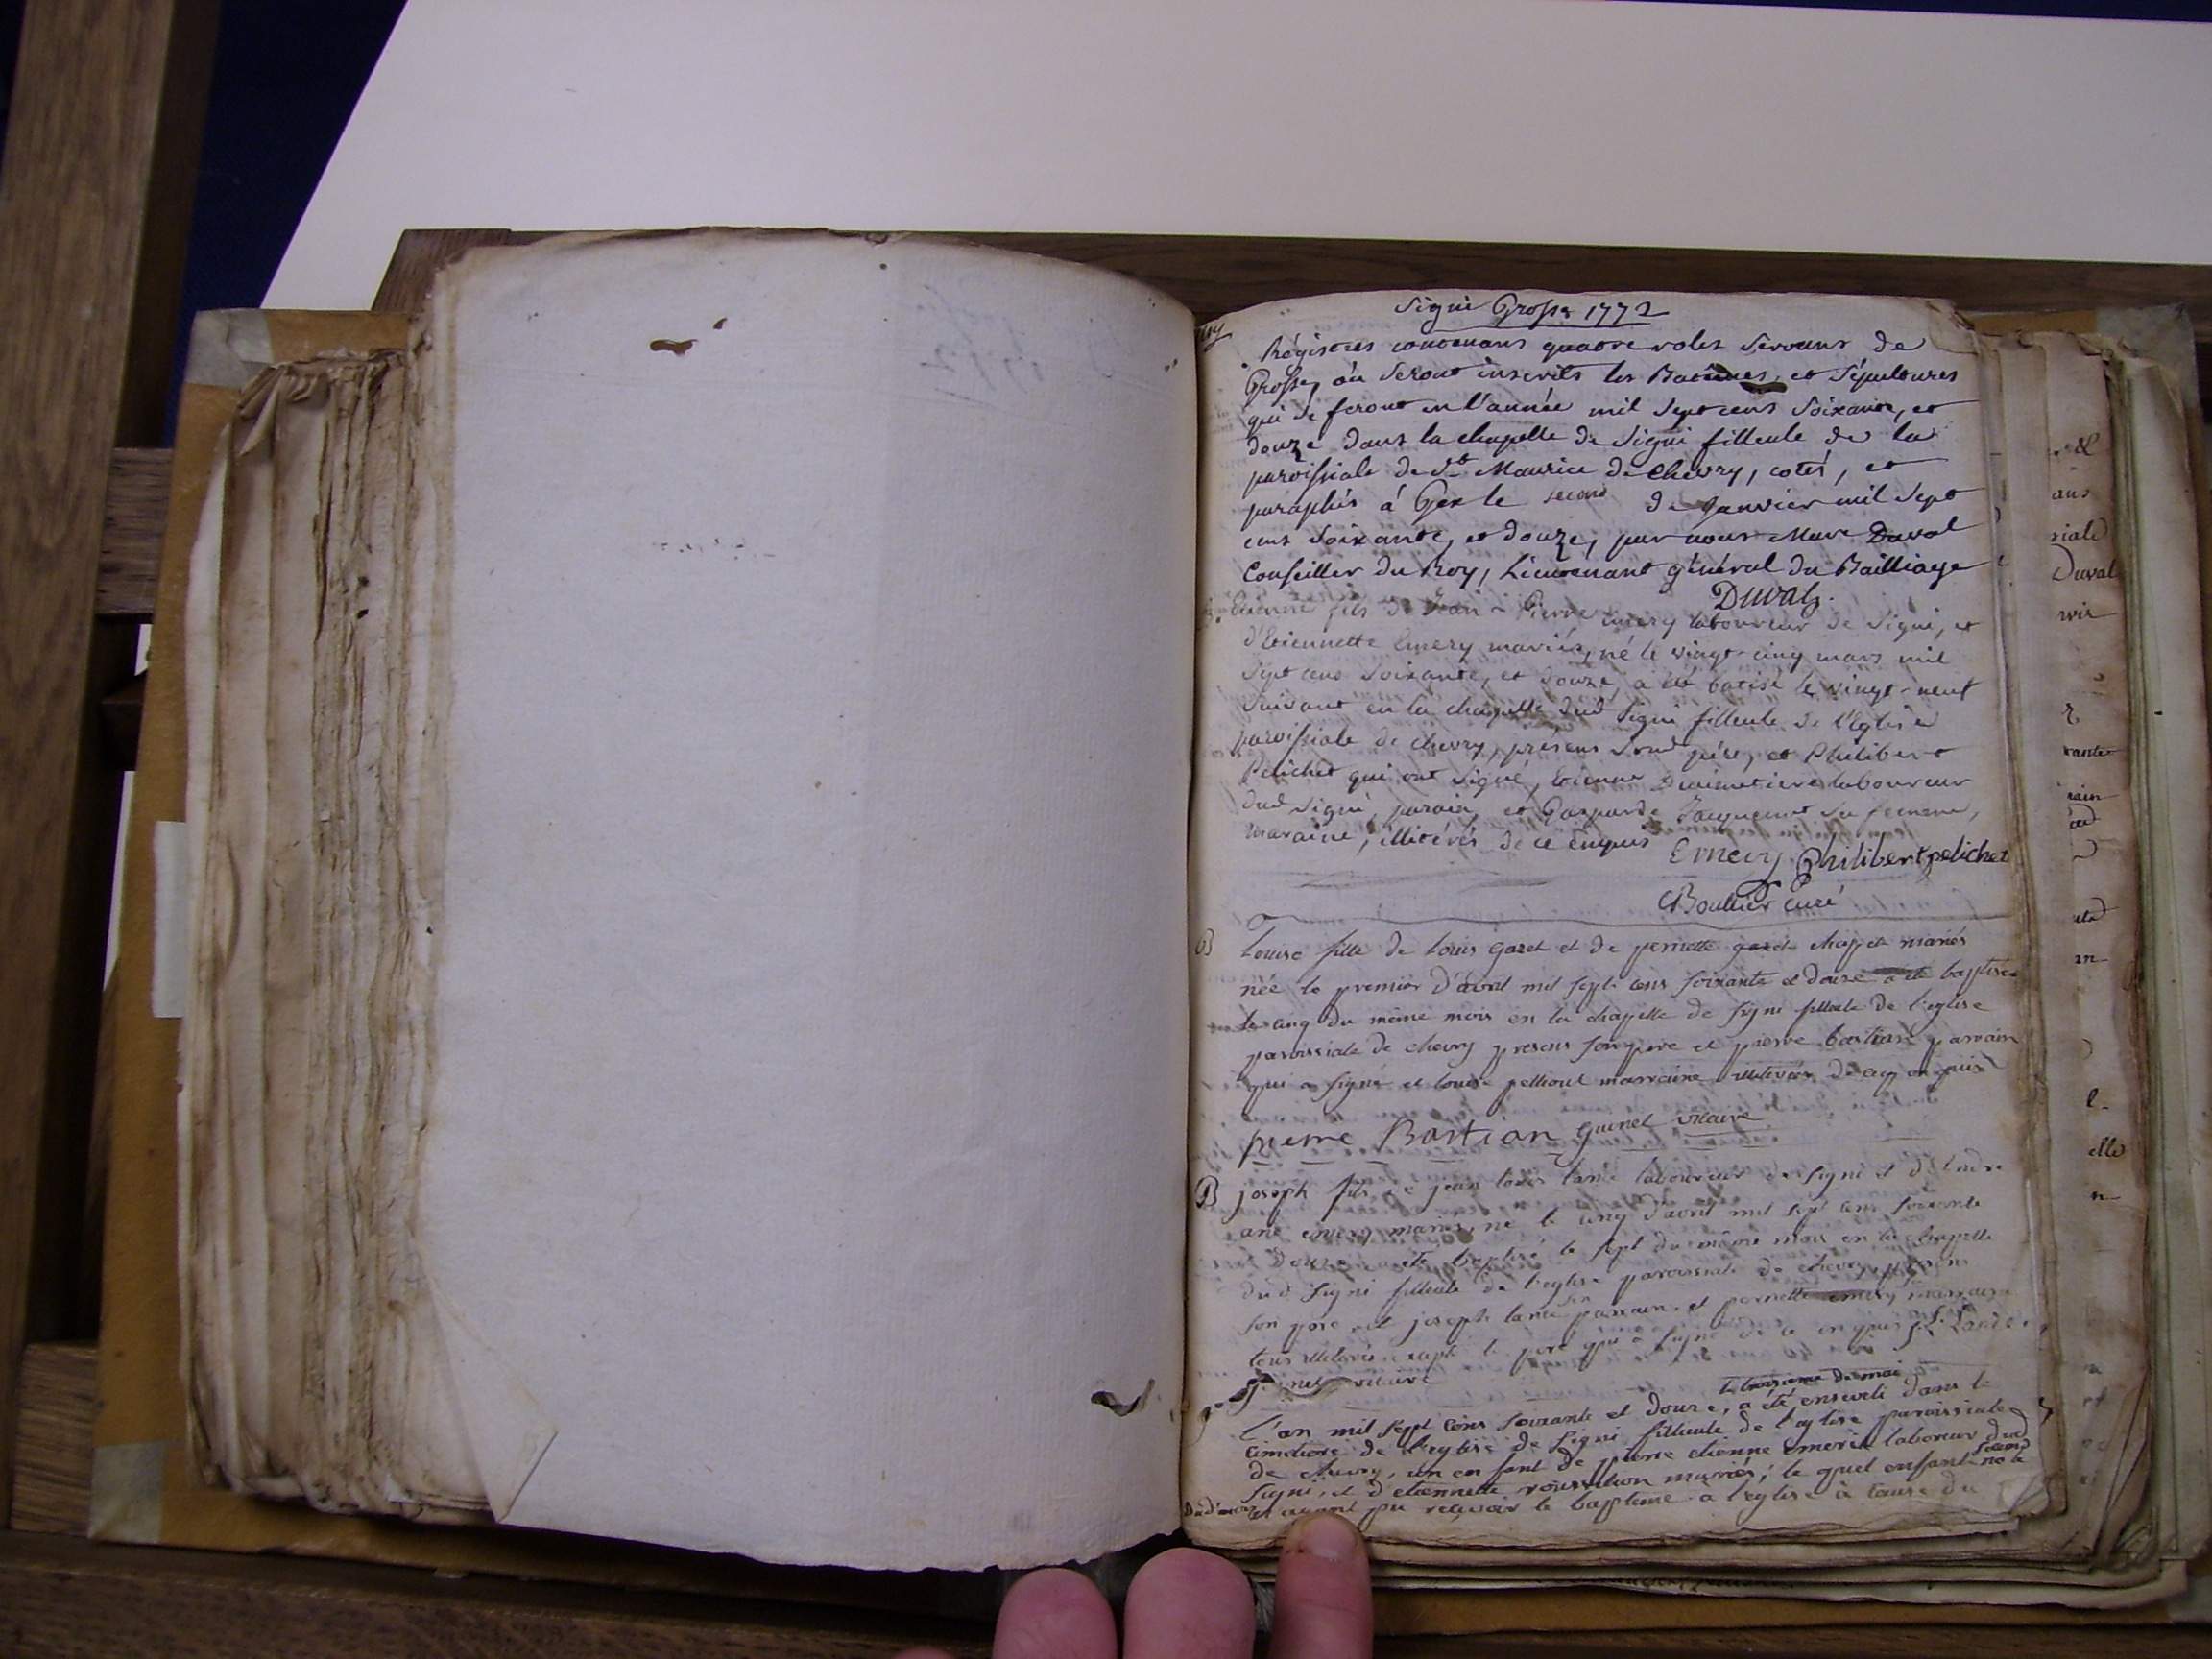 Signi Grosse 1772
Régistres contenans quatre roles servans de
Grosse, où seront inscrits les Batêmes, et Sépultures
qui se feront en l'année mil sept cens soixante, et
douze dans la chapelle de Signi filleule de la
paroissiale de St Maurice de Chevry, cotés, et
paraphés à Gex le second de Janvier mil sept
cens soixante, et douze, par nous Marc Duval
Conseiller du Roy, Lieutenant général du Bailliage
Duval
Etienne fils de Jean-Pierre Emery laboureur de Signi, et
d'Etiennette Emery mariés, né le vingt-cinq mars mil
sept cens soixante, et douze, a été batisé le vingt-neuf
suivant en la chapelle dud Signi filleule de l'Eglise
paroissiale de Chevry, présens sond père, et Philibert
Pelichet qui ont signé, Etienne laboureur
dud Signi, parain, et Gasparde sa femme,
maraine, illitérés de ce enquis Emery Philibert pelichet
Boullier curé
B Louise fille de louis gazet et de pernette gazet chappet mariés
née le premier d'avril mil sept cens soixante et douze a été baptisée
le cinq du même mois en la chapelle de signi filleule de l'eglise
paroissiale de chevry presens son pere et pierre bastian parrain
qui a signé et louise pelliout marraine illiterés de ce enquis
pierre Bastian guinet vicaire
B joseph fils de jean louis lande laboureur de signi et d'Andre
ane emery mariés, né le cinq d'avril mil sept cens soixante
et Douze a été baptisé le sept du même mois en la chapelle
dud Signi filleule de l'eglise paroissiale de chevry, presens
son père et joseph lande son parrain et pernette emery marraine
tous illiterés excepté le pere qui a signé de ce enquis J. L. Lande
guinet vicaire
le troisieme de mai
L'an mil sept cens soixante et douze, a été enseveli dans le
cimetiere de l'eglise de Signi filleule de l'eglise paroissiale
de chevry, un enfant de pierre etienne emerik laboreur dud
Signi, et d'etiennette roussillion mariés; le quel enfant né le second
Dud' mois et ayant pu recevoir le baptême à l'eglise à cause du